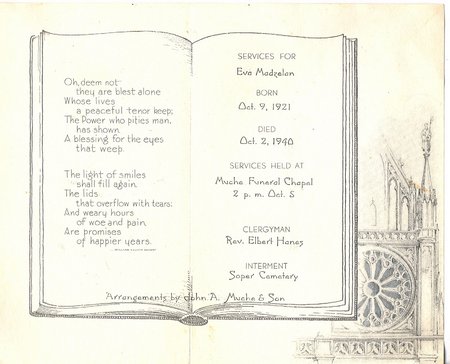 Oh, deem not
they are blest alone
Whose lives
a peaceful tenor keep;
The Power who pities man,
has shown
A blessing for the eyes
that weep.
The light of smiles
shall fill again
The lids
that overflow with tears;
And weary hours
of woe and pain
Are promises
of happier years.
— WILLIAM CULLEN BRYANT
SERVICES FOR
Eva Madzelan
BORN
Oct. 9, 1921
DIED
Oct. 2, 1940
SERVICES HELD AT
Mucha Funeral Chapel
2 p. m. Oct. 5
CLERGYMAN
Rev. Elbert Hanes
INTERMENT
Soper Cemetery
Arrangements by John A. Mucha & Son